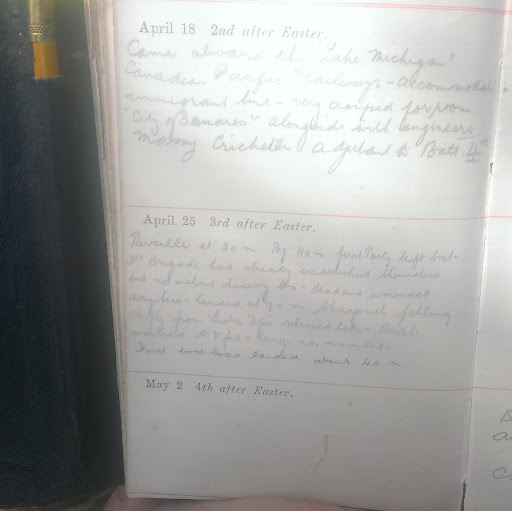 April 18 2nd after Easter.
Came aboard the 'Lake Michigan'
Canadian Pacific Railways - accommodati
immigrant line - very cramped for room
"City of Benares" alongside with engineers
Massy Cricketer adjutant to Batt. 4th
April 25 3rd after Easter.
Reveille at 3 a m By 4 a m first Party left boat -
Brigade has already established themselves
but not without heavy - dead and wounded
everywhere - landed at 9 a m Shrapnel falling
chiefly from -
wounded
First boat load landed about 4 a.m.
May 2 4th after Easter.